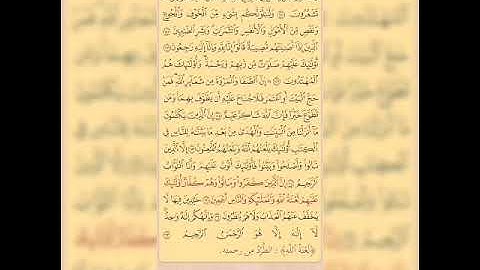 تَشْعُرُونَ ١٥٤ وَلَنَبْلُوَنَّكُم بِشَيْءٍ مِّنَ ٱلْخَوْفِ وَٱلْجُوعِ
وَنَقْصٍ مِّنَ ٱلْأَمْوَٰلِ وَٱلْأَنفُسِ وَٱلثَّمَرَٰتِ وَبَشِّرِ ٱلصَّٰبِرِينَ ١٥٥
ٱلَّذِينَ إِذَآ أَصَٰبَتْهُم مُّصِيبَةٌ قَالُوٓا۟ إِنَّا لِلَّهِ وَإِنَّآ إِلَيْهِ رَٰجِعُونَ ١٥٦
أُو۟لَٰٓئِكَ عَلَيْهِمْ صَلَوَٰتٌ مِّن رَّبِّهِمْ وَرَحْمَةٌ وَأُو۟لَٰٓئِكَ هُمُ
ٱلْمُهْتَدُونَ ١٥٧ إِنَّ ٱلصَّفَا وَٱلْمَرْوَةَ مِن شَعَآئِرِ ٱللَّهِ فَمَنْ
حَجَّ ٱلْبَيْتَ أَوِ ٱعْتَمَرَ فَلَا جُنَاحَ عَلَيْهِ أَن يَطَّوَّفَ بِهِمَا وَمَن
تَطَوَّعَ خَيْرًا فَإِنَّ ٱللَّهَ شَاكِرٌ عَلِيمٌ ١٥٨ إِنَّ ٱلَّذِينَ يَكْتُمُونَ
مَآ أَنزَلْنَا مِنَ ٱلْبَيِّنَٰتِ وَٱلْهُدَىٰ مِنۢ بَعْدِ مَا بَيَّنَّٰهُ لِلنَّاسِ فِي
ٱلْكِتَٰبِ أُو۟لَٰٓئِكَ يَلْعَنُهُمُ ٱللَّهُ وَيَلْعَنُهُمُ ٱللَّٰعِنُونَ ١٥٩ إِلَّا ٱلَّذِينَ
تَابُوا۟ وَأَصْلَحُوا۟ وَبَيَّنُوا۟ فَأُو۟لَٰٓئِكَ أَتُوبُ عَلَيْهِمْ وَأَنَا ٱلتَّوَّابُ
ٱلرَّحِيمُ ١٦٠ إِنَّ ٱلَّذِينَ كَفَرُوا۟ وَمَاتُوا۟ وَهُمْ كُفَّارٌ أُو۟لَٰٓئِكَ
عَلَيْهِمْ لَعْنَةُ ٱللَّهِ وَٱلْمَلَٰٓئِكَةِ وَٱلنَّاسِ أَجْمَعِينَ ١٦١ خَٰلِدِينَ فِيهَا لَا
يُخَفَّفُ عَنْهُمُ ٱلْعَذَابُ وَلَا هُمْ يُنظَرُونَ ١٦٢ وَإِلَٰهُكُمْ إِلَٰهٌ وَٰحِدٌ
لَّآ إِلَٰهَ إِلَّا هُوَ ٱلرَّحْمَٰنُ ٱلرَّحِيمُ ١٦٣
﴿لَعْنَةُ اللَّهِ﴾ : الطَّرْدُ مِن رحمتِه.